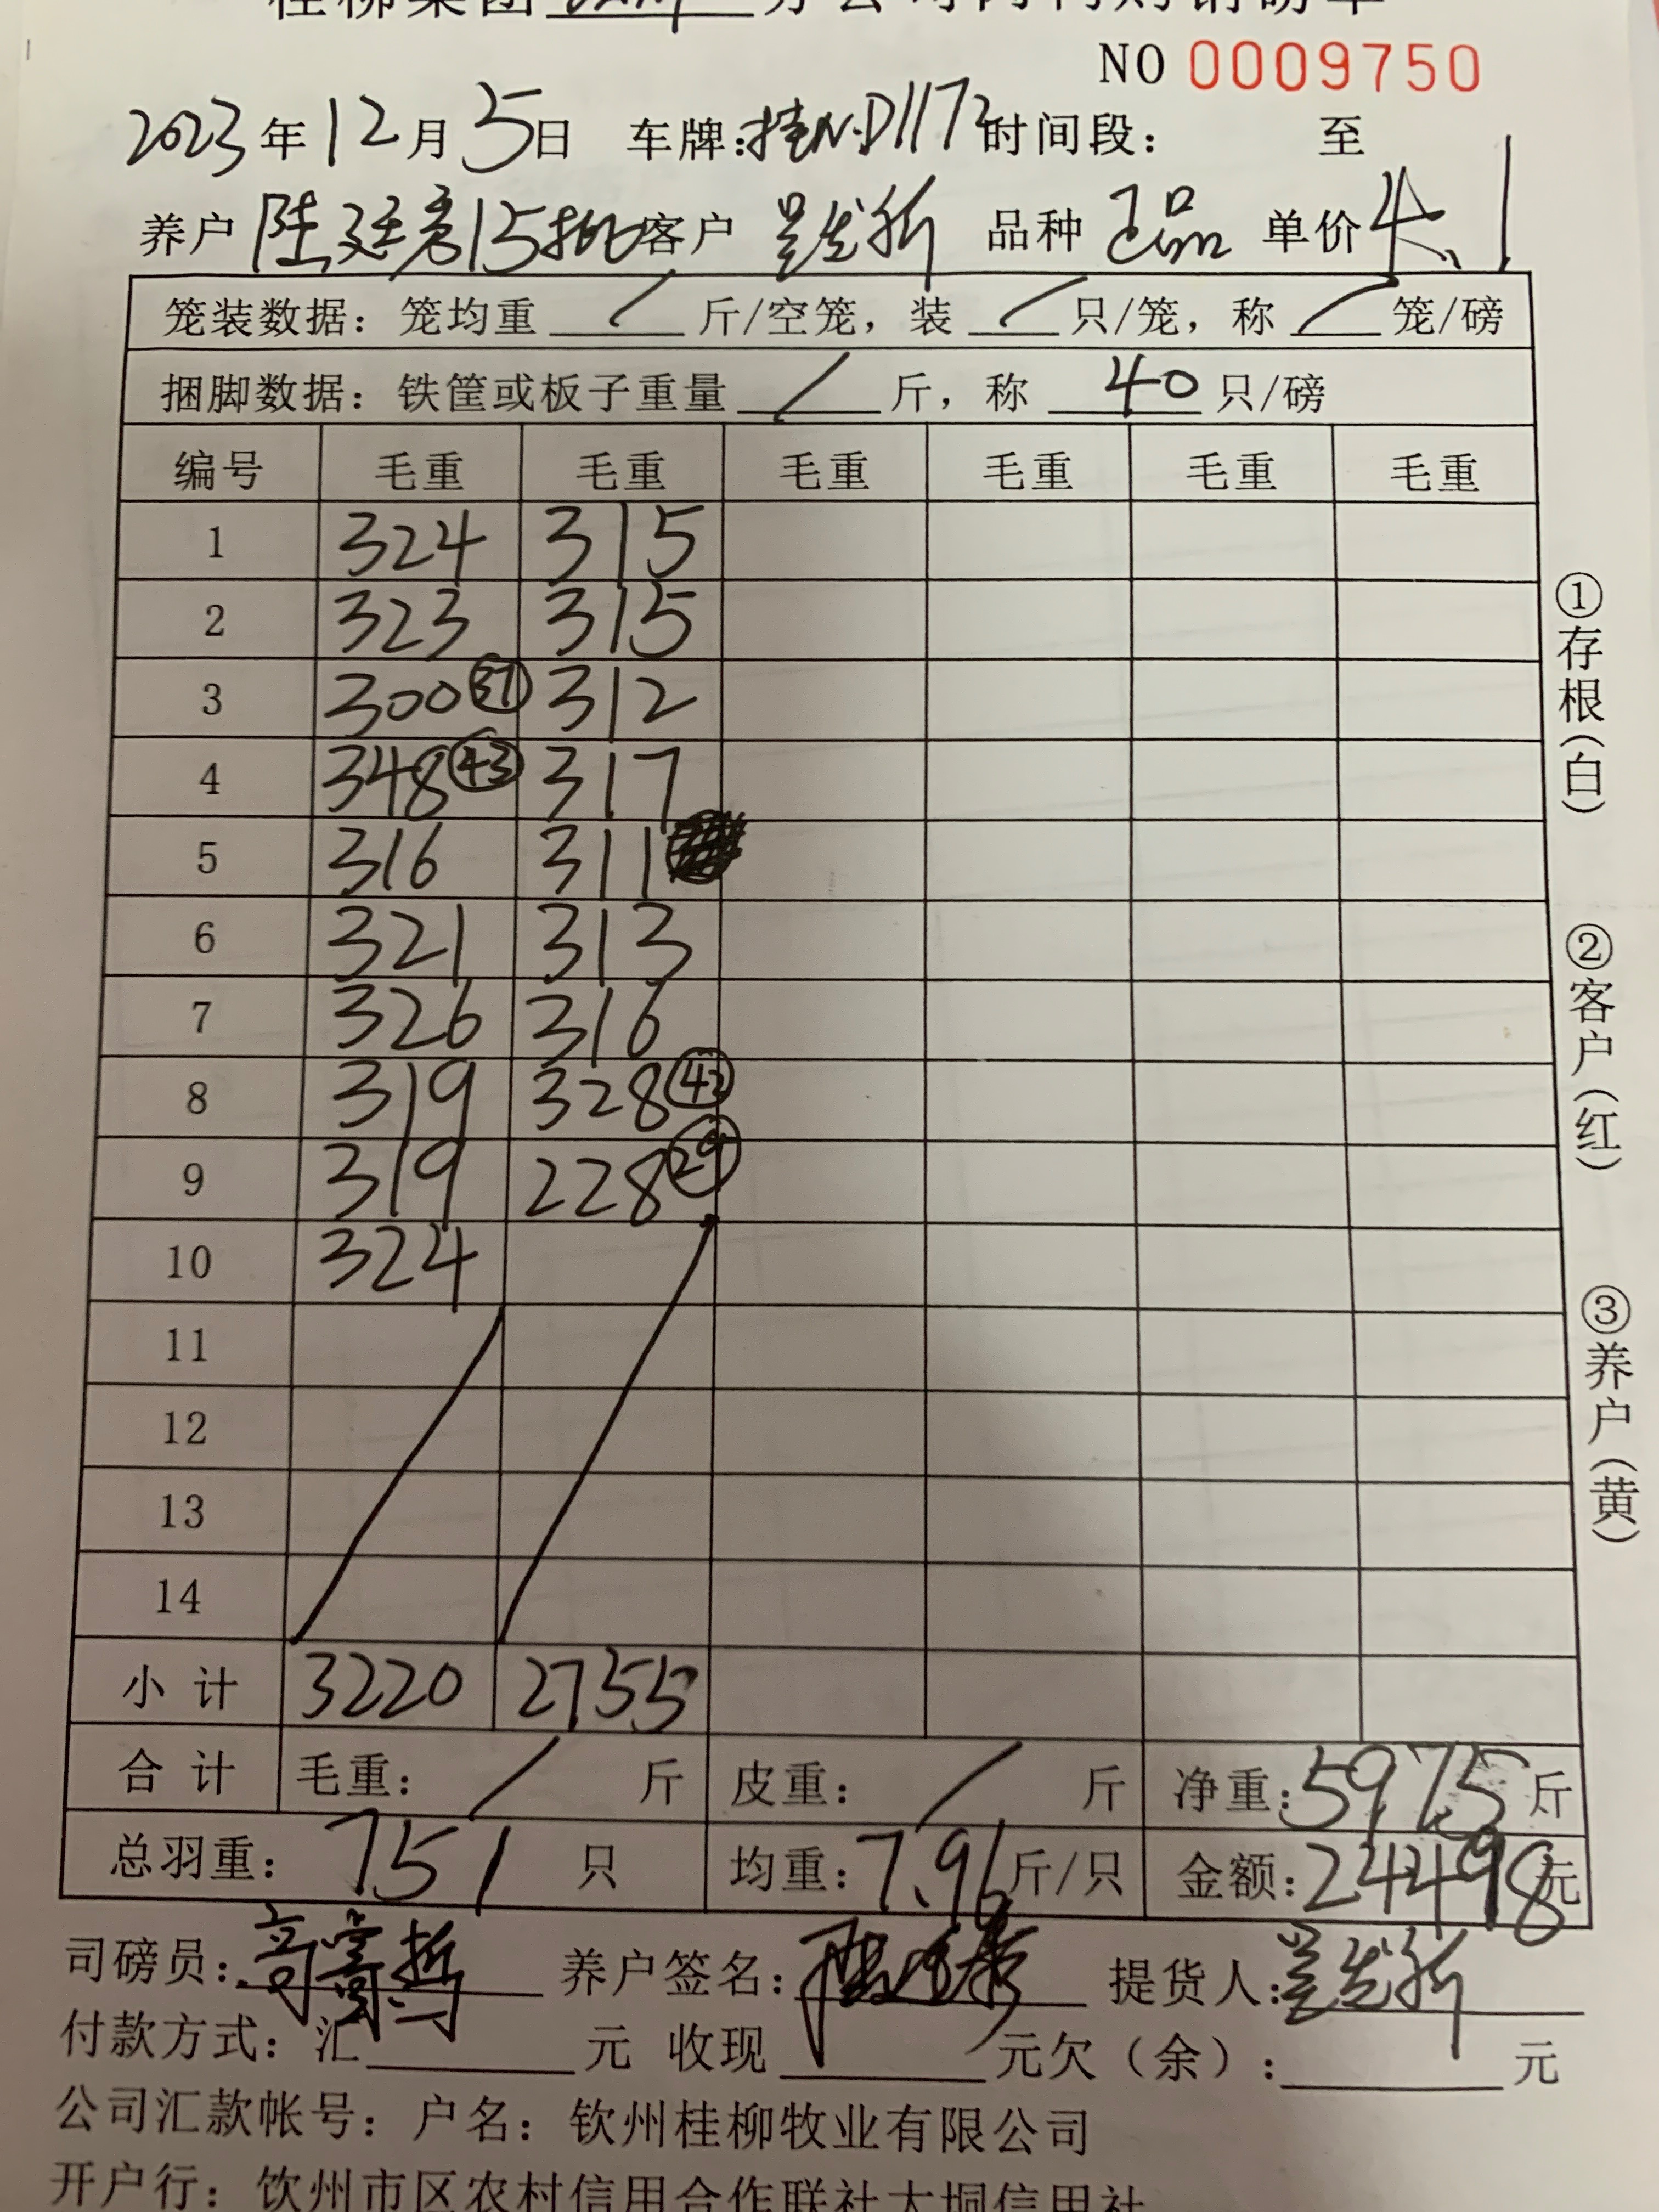 桂柳集团 分公司肉鸭购销磅单
NO 0009750
2023年12月5日 车牌:桂N.D1173时间段: 至
养户 陆廷彦15批 客户 品种 正品 单价4.1
笼装数据: 笼均重 / 斤/空笼, 装 / 只/笼, 称 / 笼/磅
捆脚数据: 铁筐或板子重量 / 斤, 称 40 只/磅
编号 毛重 毛重 毛重 毛重 毛重 毛重
1 324 315
2 323 315
3 300 37 312
4 348 43 317
5 316 311
6 321 313
7 326 316
8 319 328 42
9 319 228 29
10 324
11
12
13
14
小计 3220 2755
合计 毛重: / 斤 皮重: / 斤 净重:5975斤
总羽重: 751 只 均重:7.96斤/只 金额:24498元
司磅员: 养户签名: 提货人:
付款方式: 汇 元 收现 元欠(余): 元
公司汇款帐号: 户名: 钦州桂柳牧业有限公司
开户行: 钦州市区农村信用合作联社大垌信用社
①存根(白)
②客户(红)
③养户(黄)